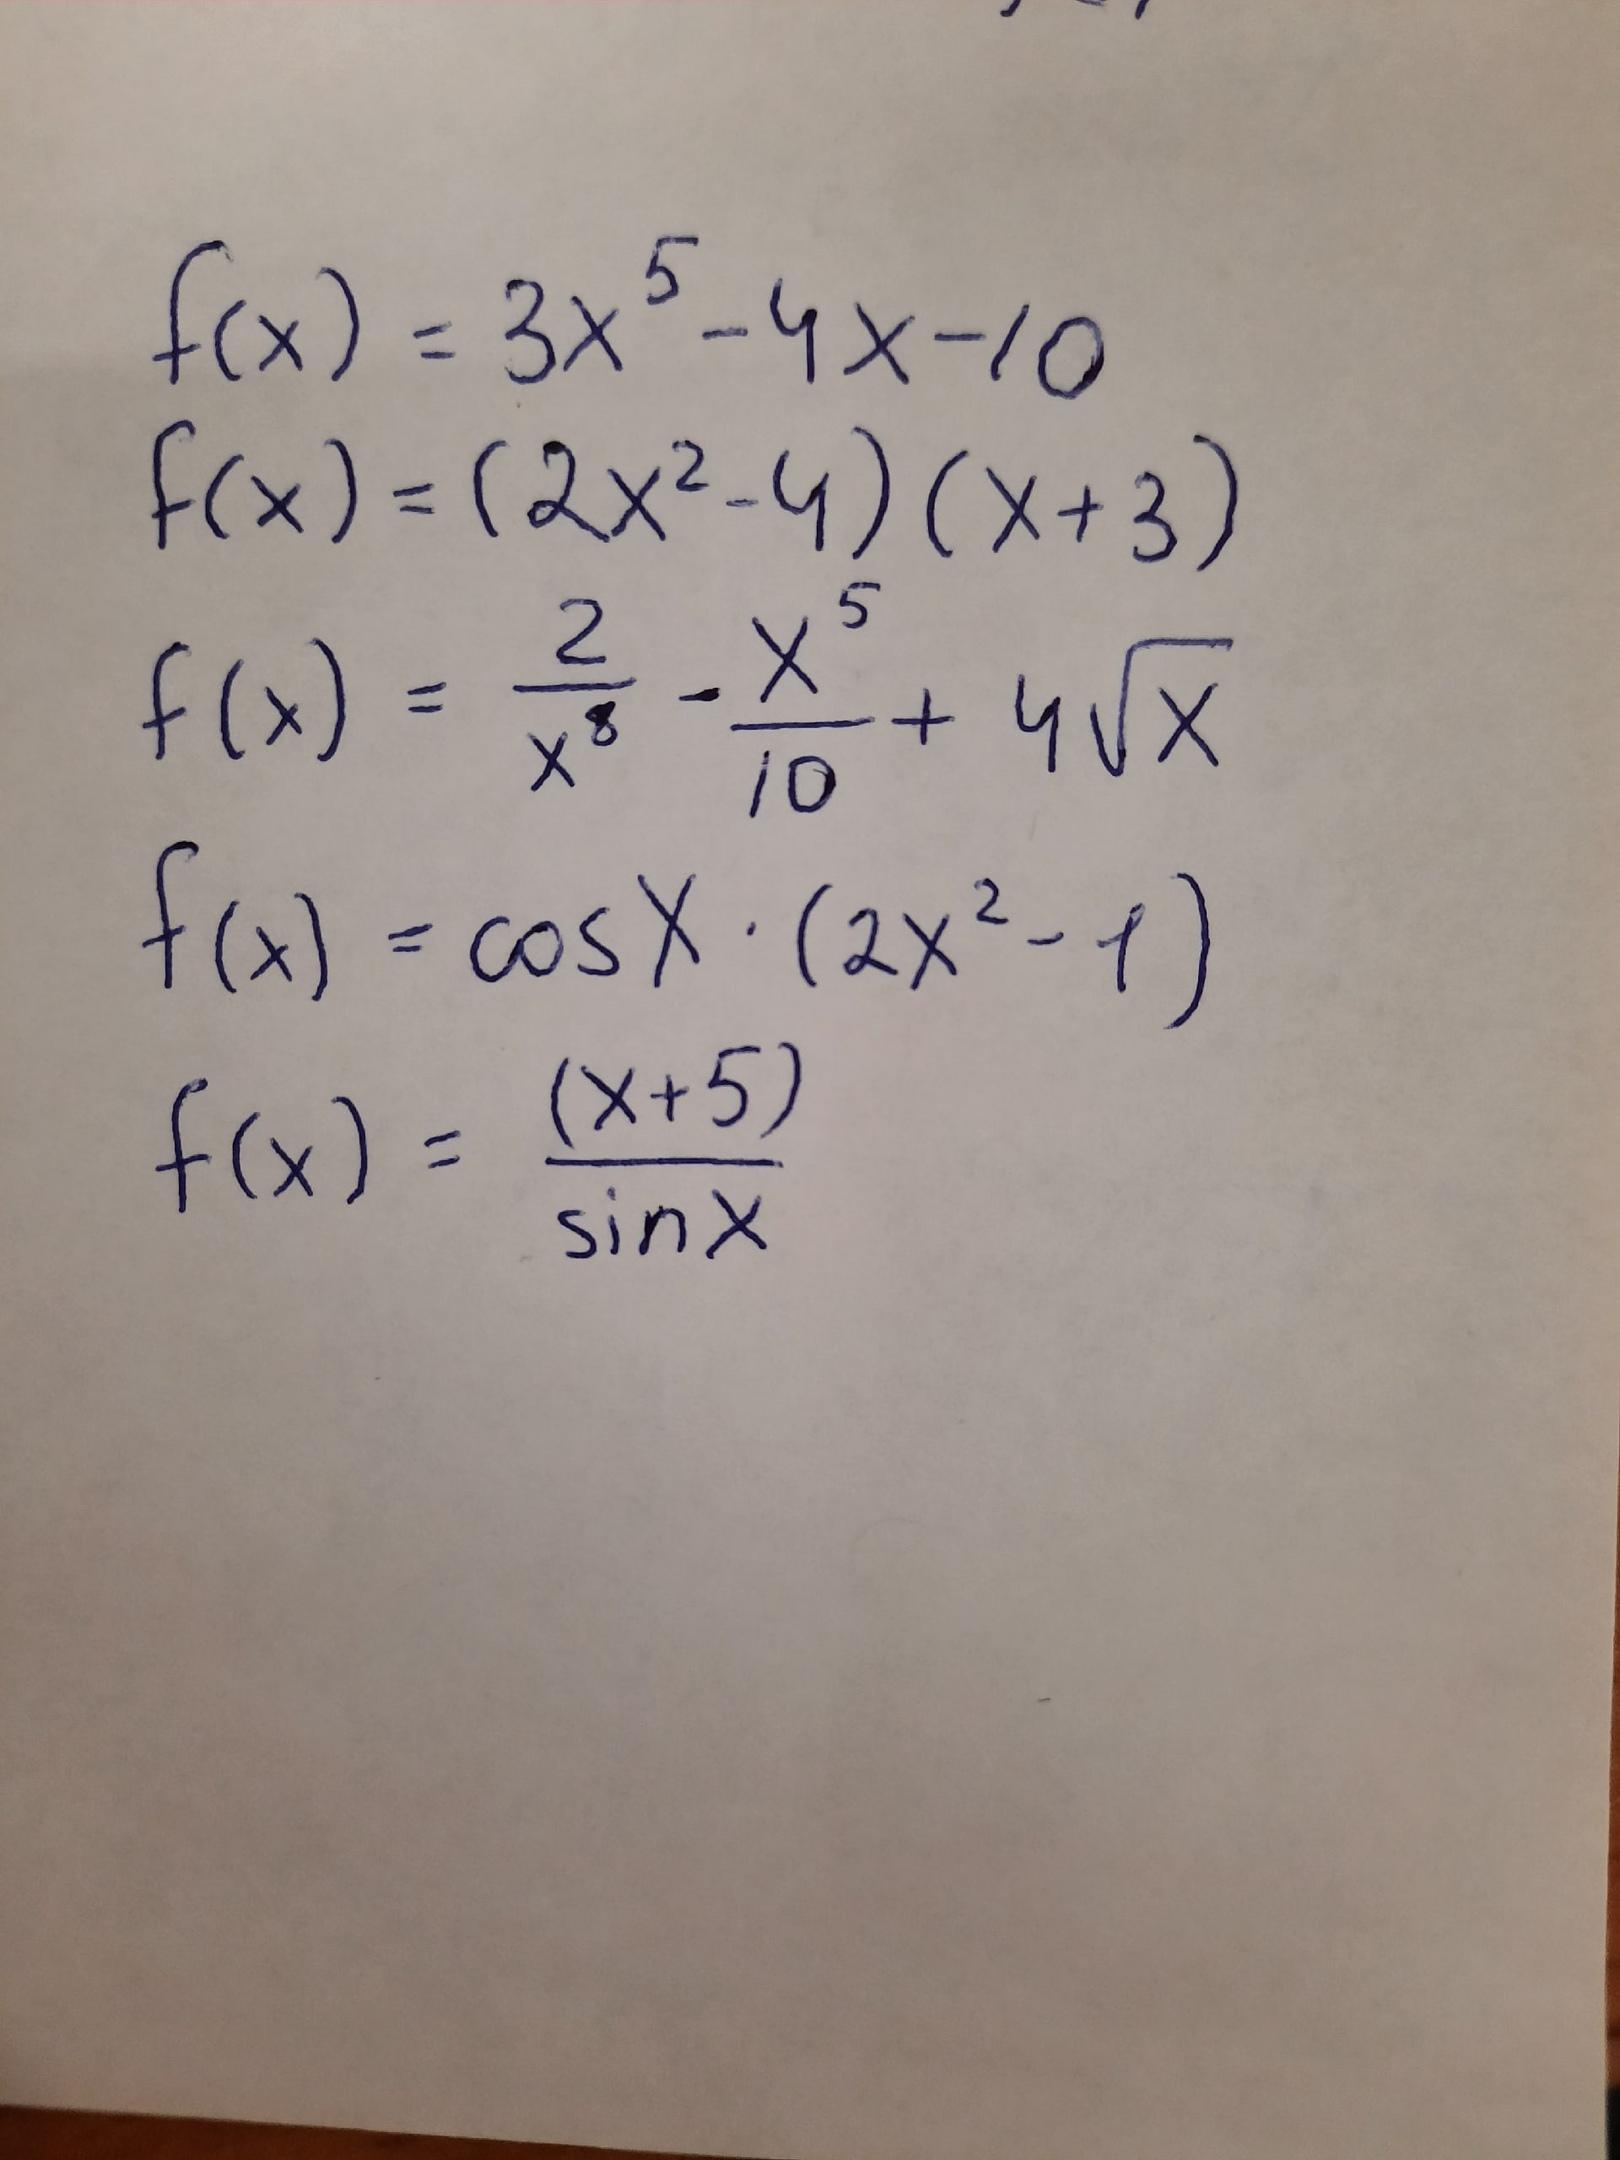 f(x) = 3x⁵ - 4x - 10
f(x) = (2x² - 4) (x + 3)
f(x) = 2/x⁸ - x⁵/10 + 4√x
f(x) = cos x · (2x² - 1)
f(x) = (x+5)/sin x